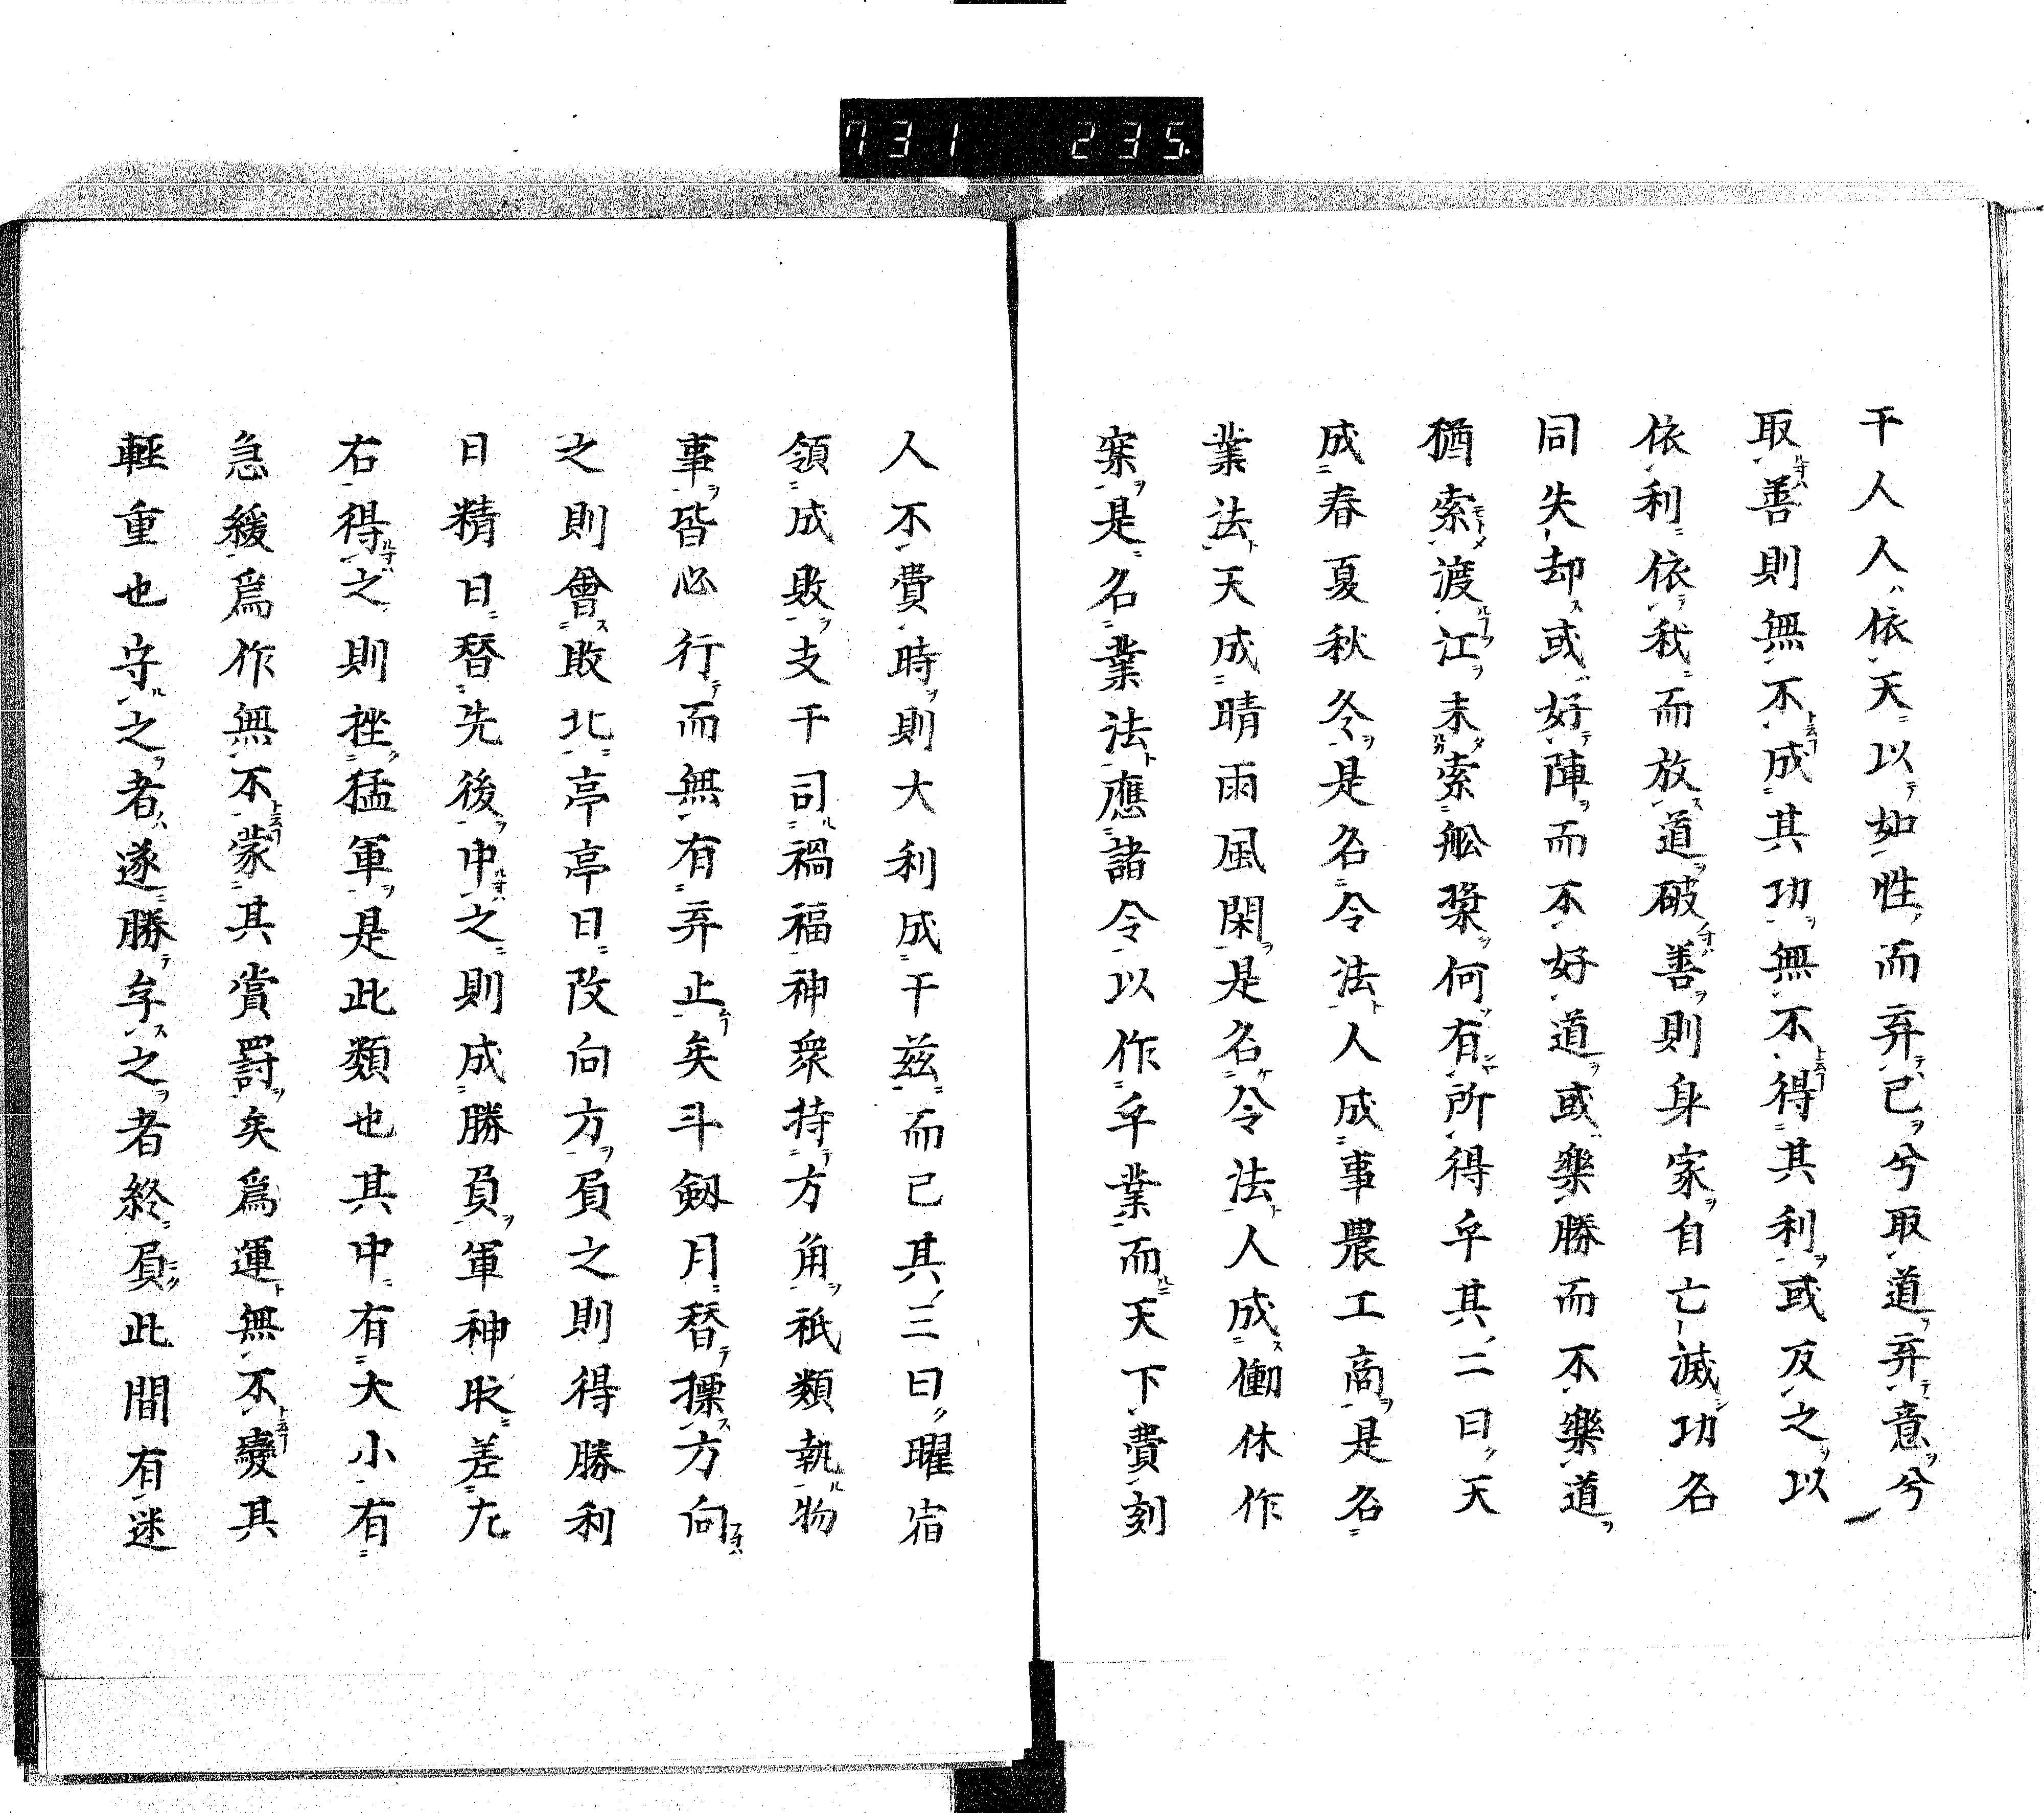 731 235
干人人依天以如性而弃己兮取道弃意兮
取善則無不成其功無不得其利或反之以
依利依我而放道破善則身家自亡滅功名
同失却或好陣而不好道或樂勝而不樂道
猶索渡江未索舩槳何有所得乎其二曰天
成春夏秋冬是名令法人成事農工商是名
業法天成晴雨風閑是名令法人成働休作
業是名業法應諸令以作乎業而天下費刻
人不費時則大利成干兹而已其三曰曜宿
領成敗支干司禍福神衆持方角祇類執物
事皆必行而無有弃止矣斗劔月替摽方向
之則會敗北亭亭日改向方負之則得勝利
日精日替先後中之則成勝負軍神取差左
右得之則挫猛軍是此類也其中有大小有
急緩爲作無不蒙其賞罸矣爲運無不變其
輕重也守之者遂勝矣之者終負此間有迷